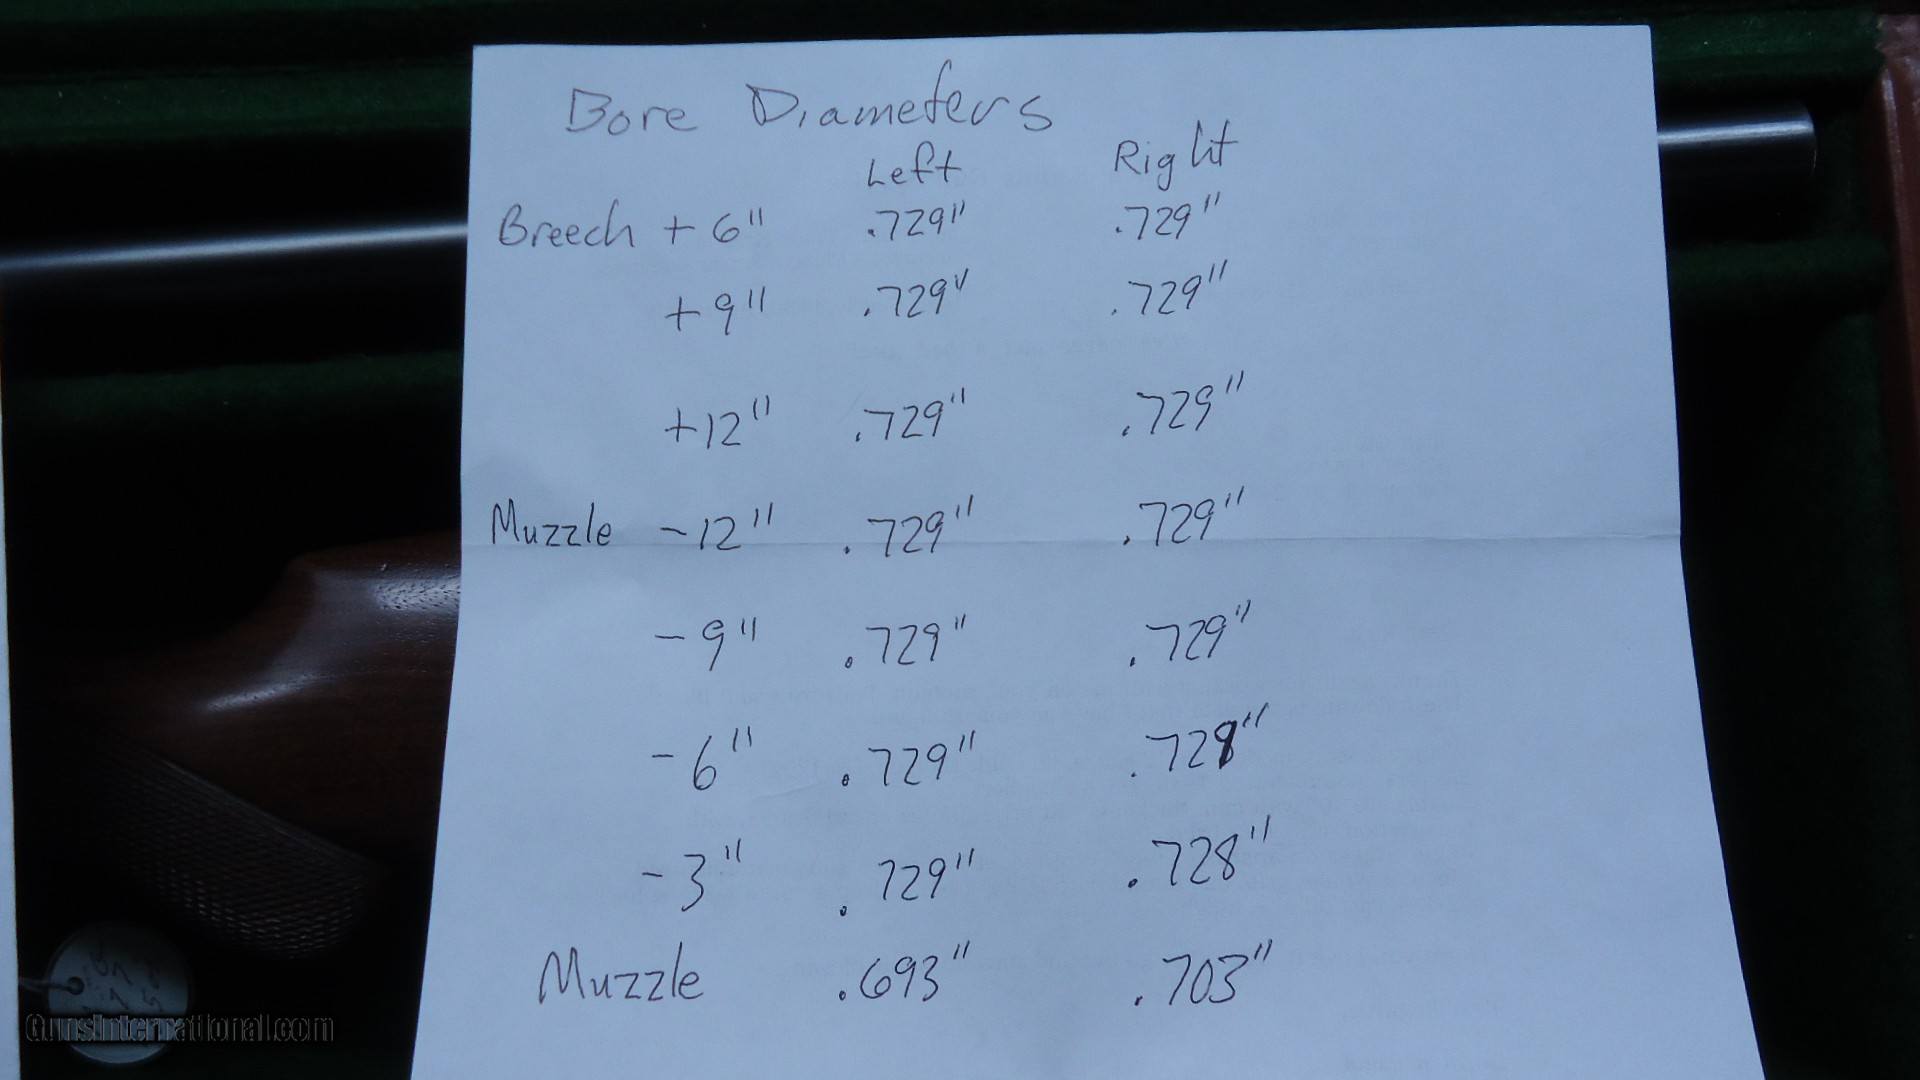 Bore Diameters
Left Right
Breech + 6" .729" .729"
+ 9" .729" .729"
+12" .729" .729"
Muzzle - 12" .729" .729"
- 9" .729" .729"
- 6" .729" .728"
- 3" .729" .728"
Muzzle .693" .703"
GunsInternational.com